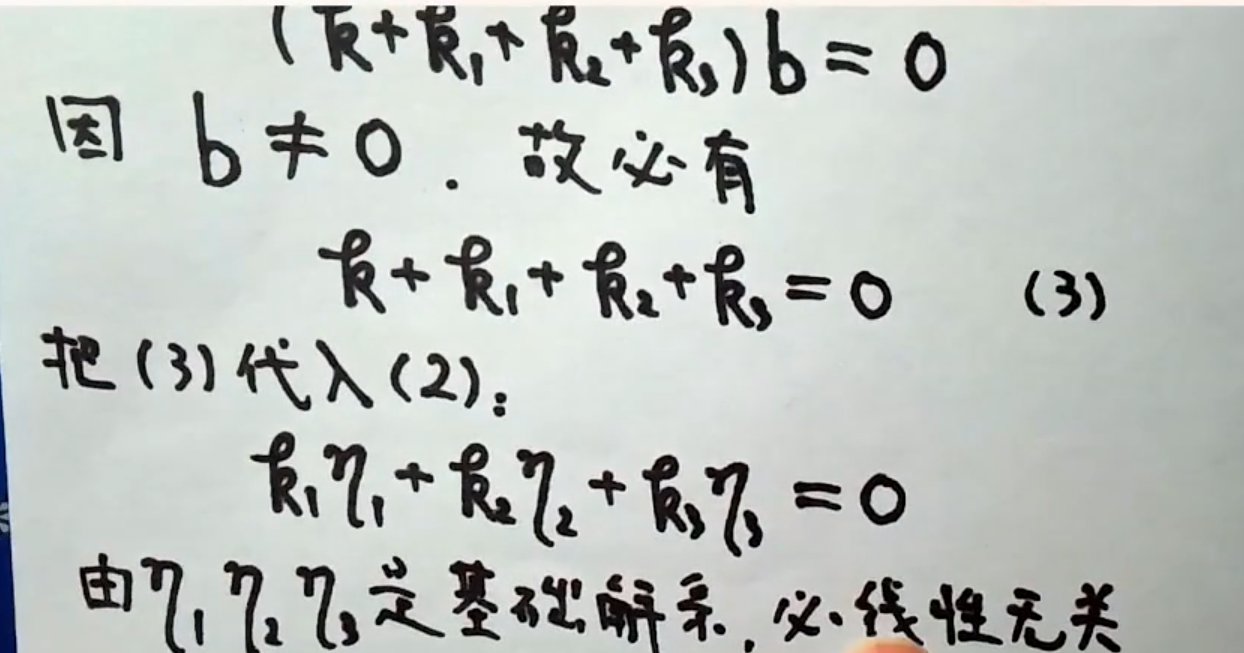 (k+k₁+k₂+k₃)b=0
因 b≠0. 故必有
k+k₁+k₂+k₃=0 (3)
把(3)代入(2):
k₁η₁+k₂η₂+k₃η₃=0
由η₁η₂η₃是基础解系,必线性无关